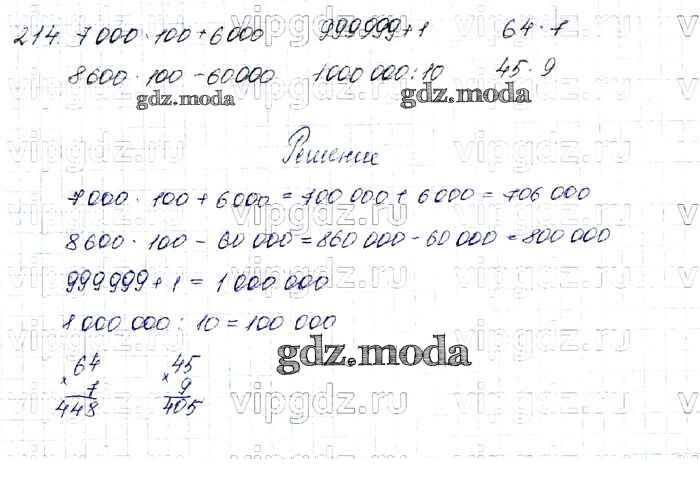 214. 7000 · 100 + 6000 999999 + 1 64 · 7
8600 · 100 - 60000 1000 000 : 10 45 · 9
gdz.moda gdz.moda
Решение
7000 · 100 + 6000 = 700 000 + 6000 = 706 000
8600 · 100 - 60 000 = 860 000 - 60 000 = 800 000
999999 + 1 = 1 000 000
1 000 000 : 10 = 100 000
gdz.moda
64 45
× 7 × 9
448 405
vipgdz.ru